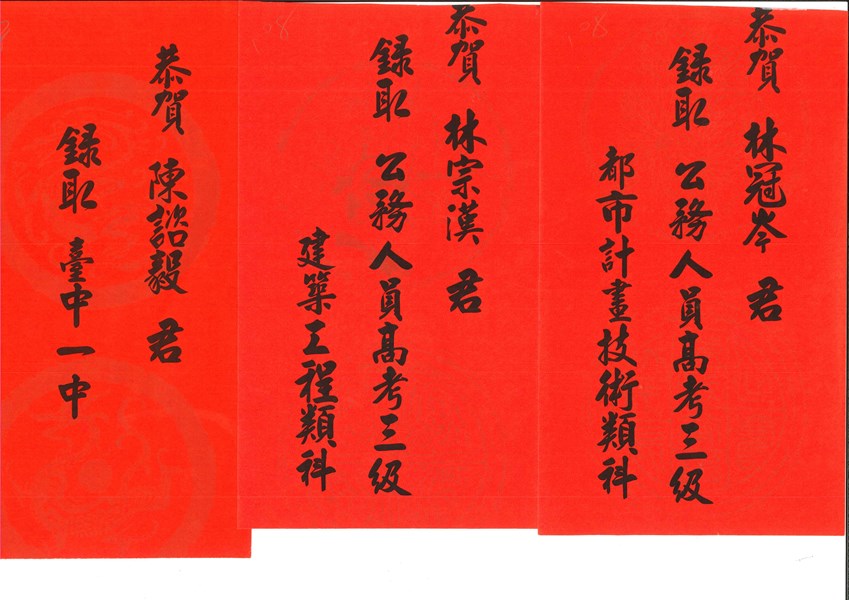 恭賀 林冠岑 君
錄取 公務人員高考三級
都市計畫技術類科
恭賀 林宗漢 君
錄取 公務人員高考三級
建築工程類科
恭賀 陳詺毅 君
錄取 臺中一中